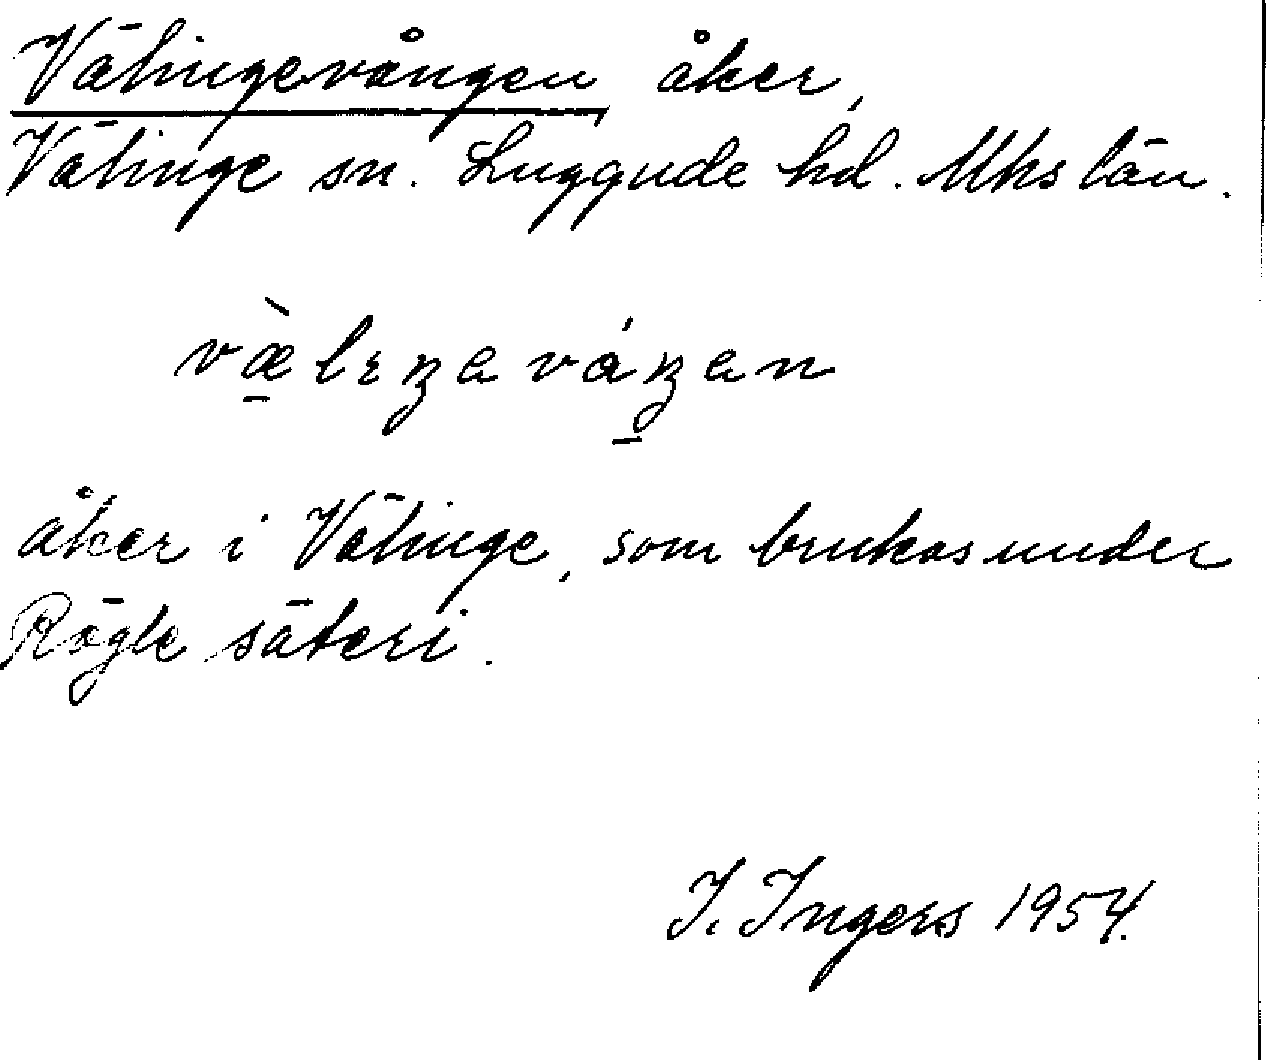 Välingevången åker,
Välinge sn. Luggude hd. Mhs län.
væ̀lıŋavåŋan
åker i Välinge, som brukas under
Rögle säteri.
I. Ingers 1954.